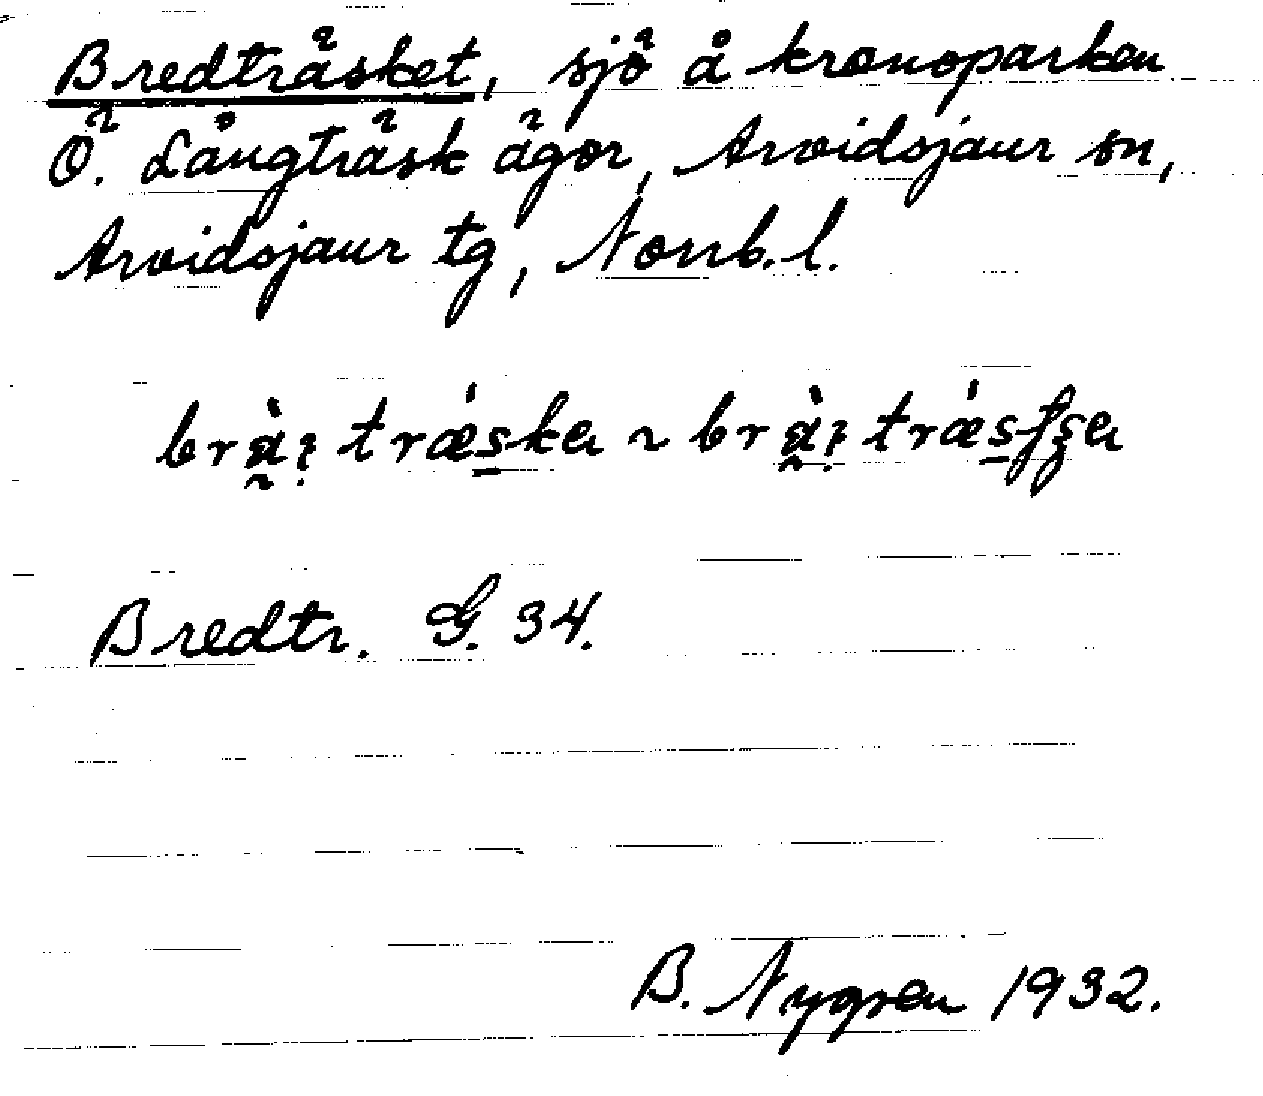 Bredträsket, sjö å kronoparken
Ö. Långträsk ägor, Arvidsjaur sn,
Arvidsjaur tg, Norrb. l.
Bredtr. G. 34.
B. Nygren 1932.